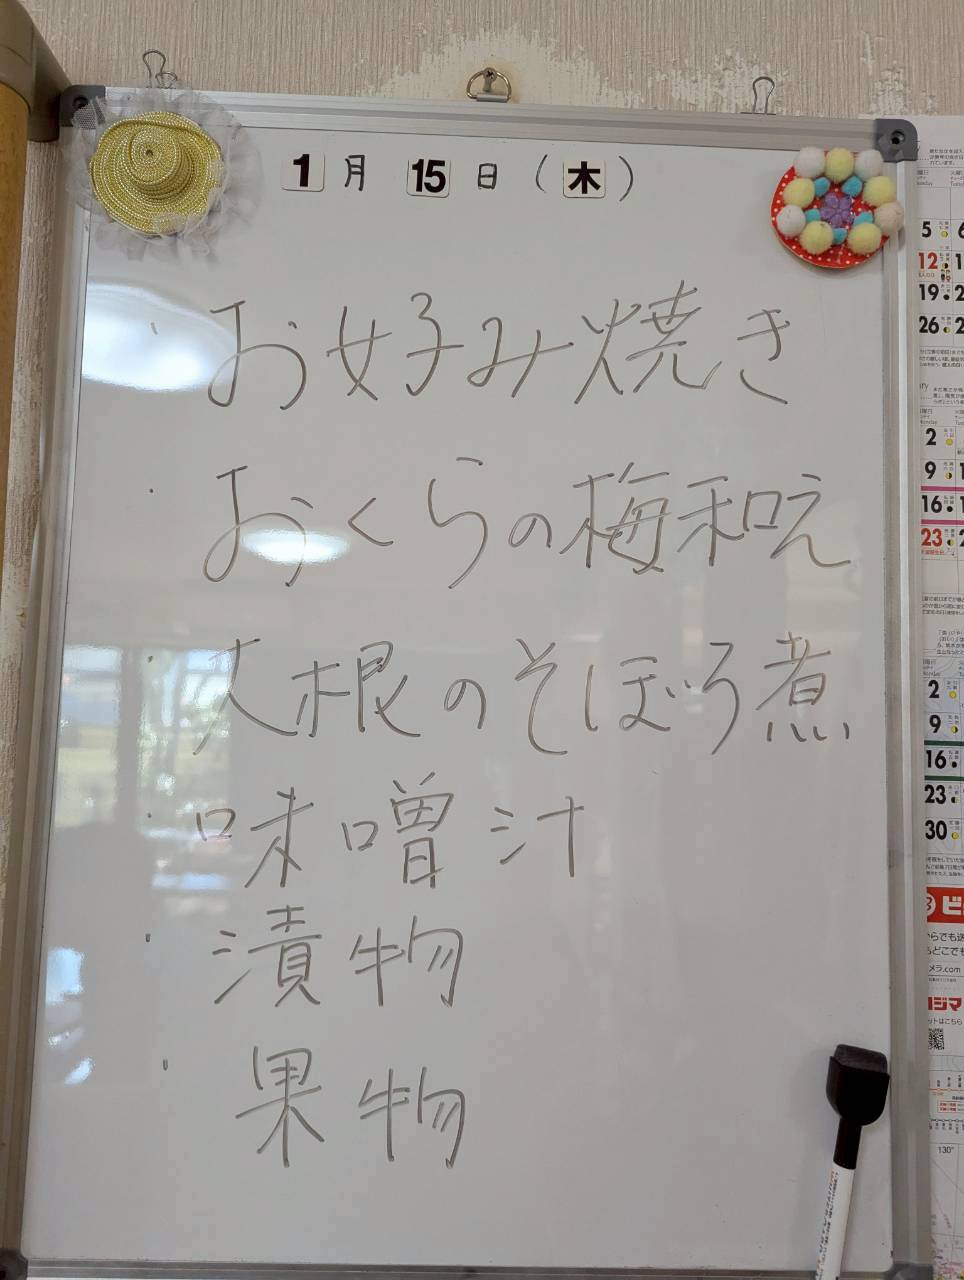 1月15日(木)
・お好み焼き
・おくらの梅和え
・大根のそぼろ煮
・味噌汁
・漬物
・果物
5
12
19
26
2
9
16
23
2
9
16
23
30
メラ.com
130°